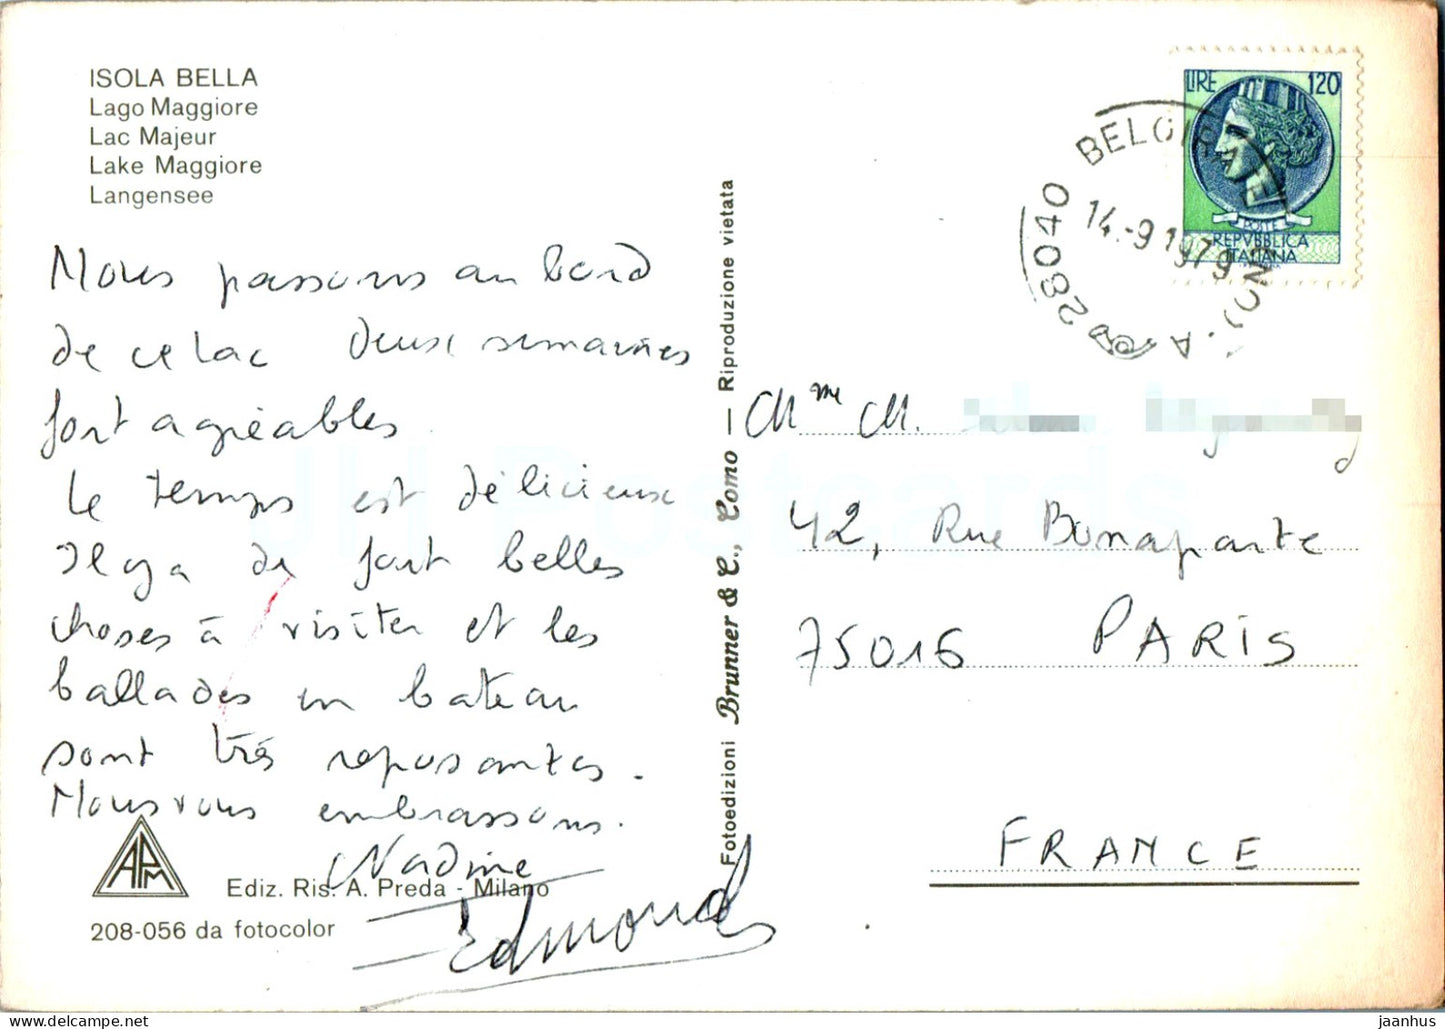 ISOLA BELLA
Lago Maggiore
Lac Majeur
Lake Maggiore
Langensee
Nous passons au bord
de ce lac deux semaines
fort agréables
Le temps est délicieux
Il y a de fort belles
choses à visiter et les
ballades en bateau
sont très reposantes.
Nous vous embrassons.
Nadine
Edmond
APM
Ediz. Ris. A. Preda - Milano
208-056 da fotocolor
Fotoedizioni Brunner & C., Como — Riproduzione vietata
LIRE 120
POSTE
REPVBBLICA
ITALIANA
28040 BELGIRATE (NO) - A
14.-9 1979
Mme M.
42, Rue Bonaparte
75016 PARIS
FRANCE
JH Postcards
jaanhus